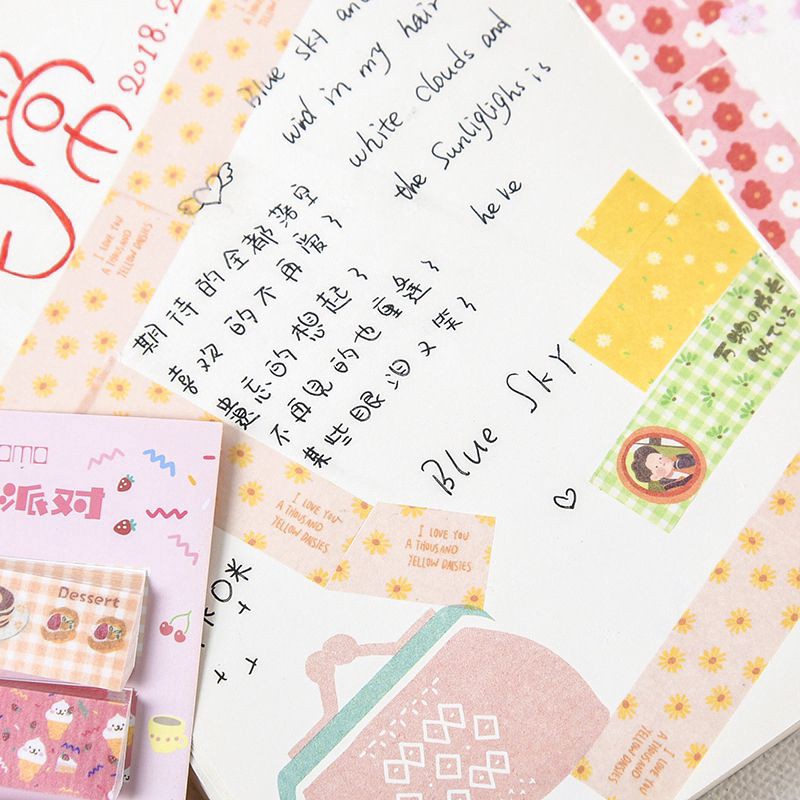 2018.2
Blue sky and
wind in my hair
white clouds and
the Sunliglighs is
heke
期待的全都落空
喜欢的不再爱了
遗忘的想起了
不再见的也重逢了
某些眼泪又笑了
Blue Sky
I LOVE YOU
A THOUSAND
YELLOW DAISIES
I LOVE YOU
A THOUSAND
YELLOW DAISIES
I LOVE YOU
A THOUSAND
YELLOW DAISIES
I LOVE YOU
A THOUSAND
YELLOW DAISIES
万物の
似ている
派对
Dessert